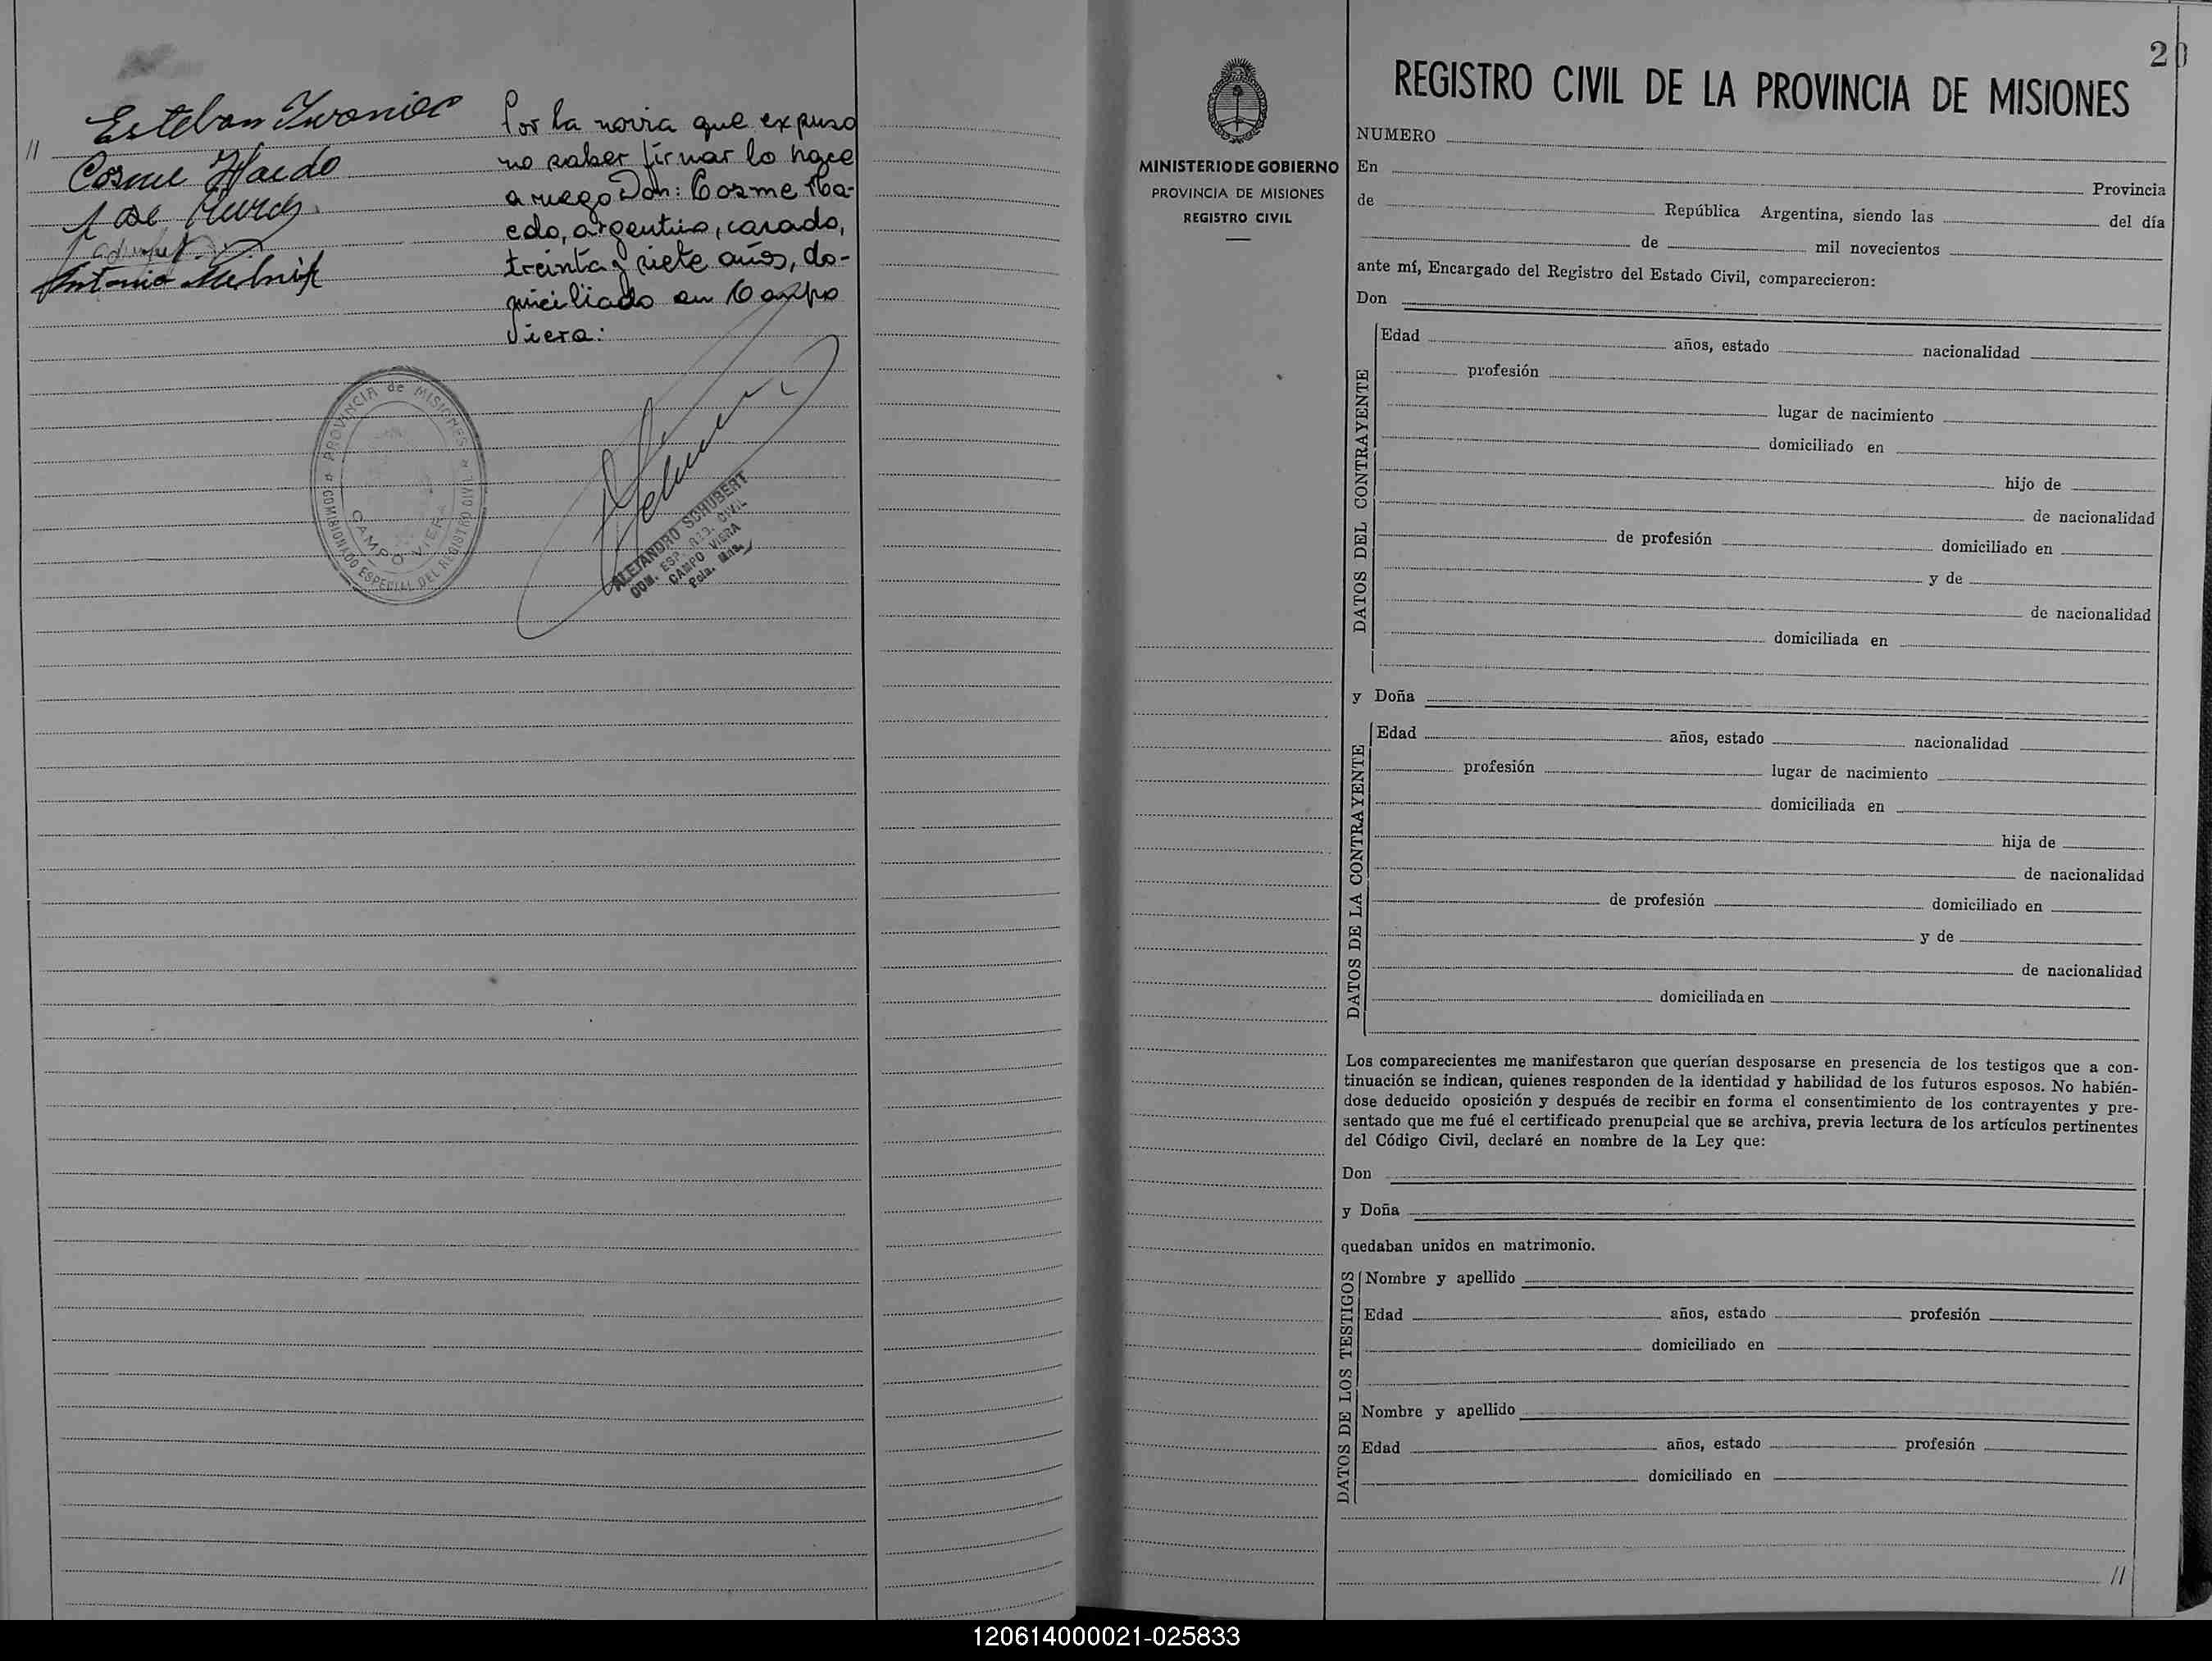 //
Esteban
Cosme Haedo
Antonio Melnik
Por la novia que expuso
no saber firmar lo hace
a ruego Don: Cosme Ha-
edo, argentino, casado,
treinta y siete años, do-
miciliado en Campo
Viera:
PROVINCIA de MISIONES
COMISIONADO ESPECIAL DEL REGISTRO CIVIL
CAMPO VIERA
ALEJANDRO SCHUBERT
COM. ESP. REG. CIVIL
CAMPO VIERA
Pcia. Mnes.
MINISTERIO DE GOBIERNO
PROVINCIA DE MISIONES
REGISTRO CIVIL
REGISTRO CIVIL DE LA PROVINCIA DE MISIONES
NUMERO
En Provincia
de República Argentina, siendo las del día
de mil novecientos
ante mí, Encargado del Registro del Estado Civil, comparecieron:
Don
DATOS DEL CONTRAYENTE
Edad años, estado nacionalidad
profesión
lugar de nacimiento
domiciliado en
hijo de
de nacionalidad
de profesión domiciliado en
y de
de nacionalidad
domiciliada en
y Doña
DATOS DE LA CONTRAYENTE
Edad años, estado nacionalidad
profesión lugar de nacimiento
domiciliada en
hija de
de nacionalidad
de profesión domiciliado en
y de
de nacionalidad
domiciliada en
Los comparecientes me manifestaron que querían desposarse en presencia de los testigos que a con-
tinuación se indican, quienes responden de la identidad y habilidad de los futuros esposos. No habién-
dose deducido oposición y después de recibir en forma el consentimiento de los contrayentes y pre-
sentado que me fué el certificado prenupcial que se archiva, previa lectura de los artículos pertinentes
del Código Civil, declaré en nombre de la Ley que:
Don
y Doña
quedaban unidos en matrimonio.
DATOS DE LOS TESTIGOS
Nombre y apellido
Edad años, estado profesión
domiciliado en
Nombre y apellido
Edad años, estado profesión
domiciliado en
//
120614000021-025833